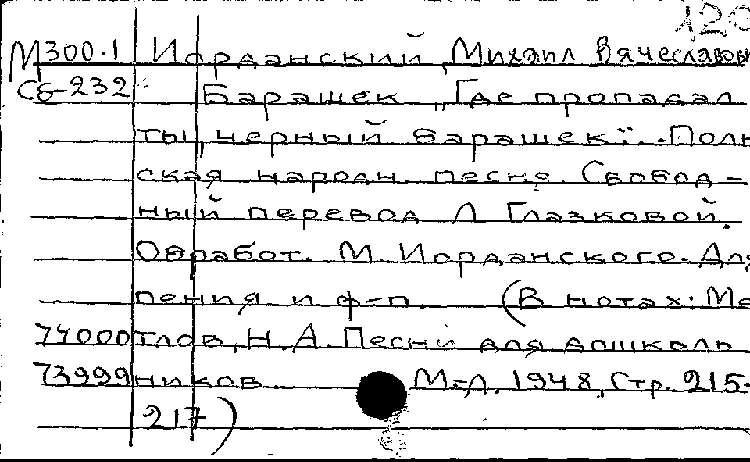 120
М300.1 Иорданский, Михаил Вячеславов
Сб-232 Барашек „Где пропадал
ты, черный барашек"... Поль
ская народн. песня. Свобод-
ный перевод Л. Глазковой.
Обработ. М. Иорданского. Для
пения и ф-п. (В нотах: Ме
74000 тлов, Н.А. Песни для дошколь
73999 ников. М-Л. 1948, Стр. 215-
217)